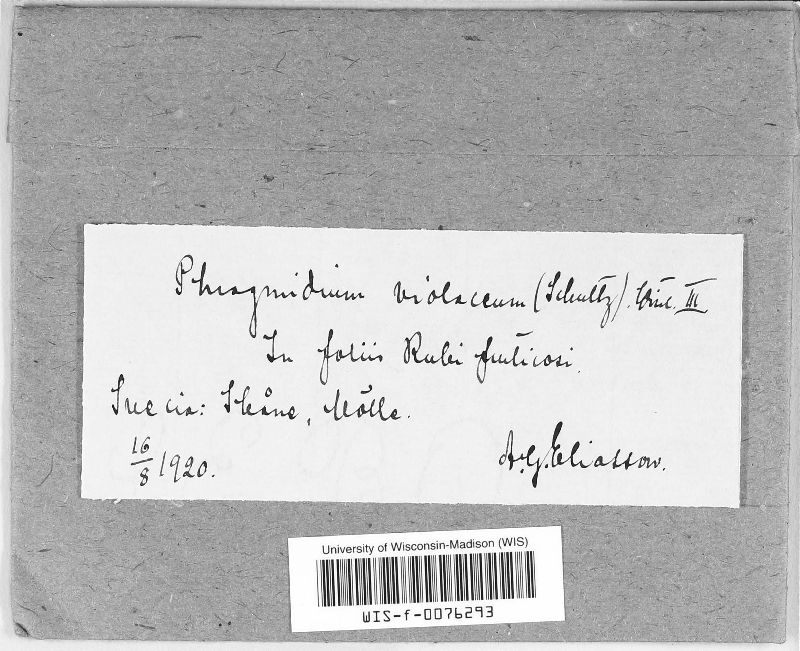 Phragmidium violaceum (Schultz). Wint. III
In foliis Rubi fruticosi.
Suecia: Skåne, Mölle.
16/8 1920.
A.G. Eliasson.
University of Wisconsin-Madison (WIS)
WIS-f-0076293